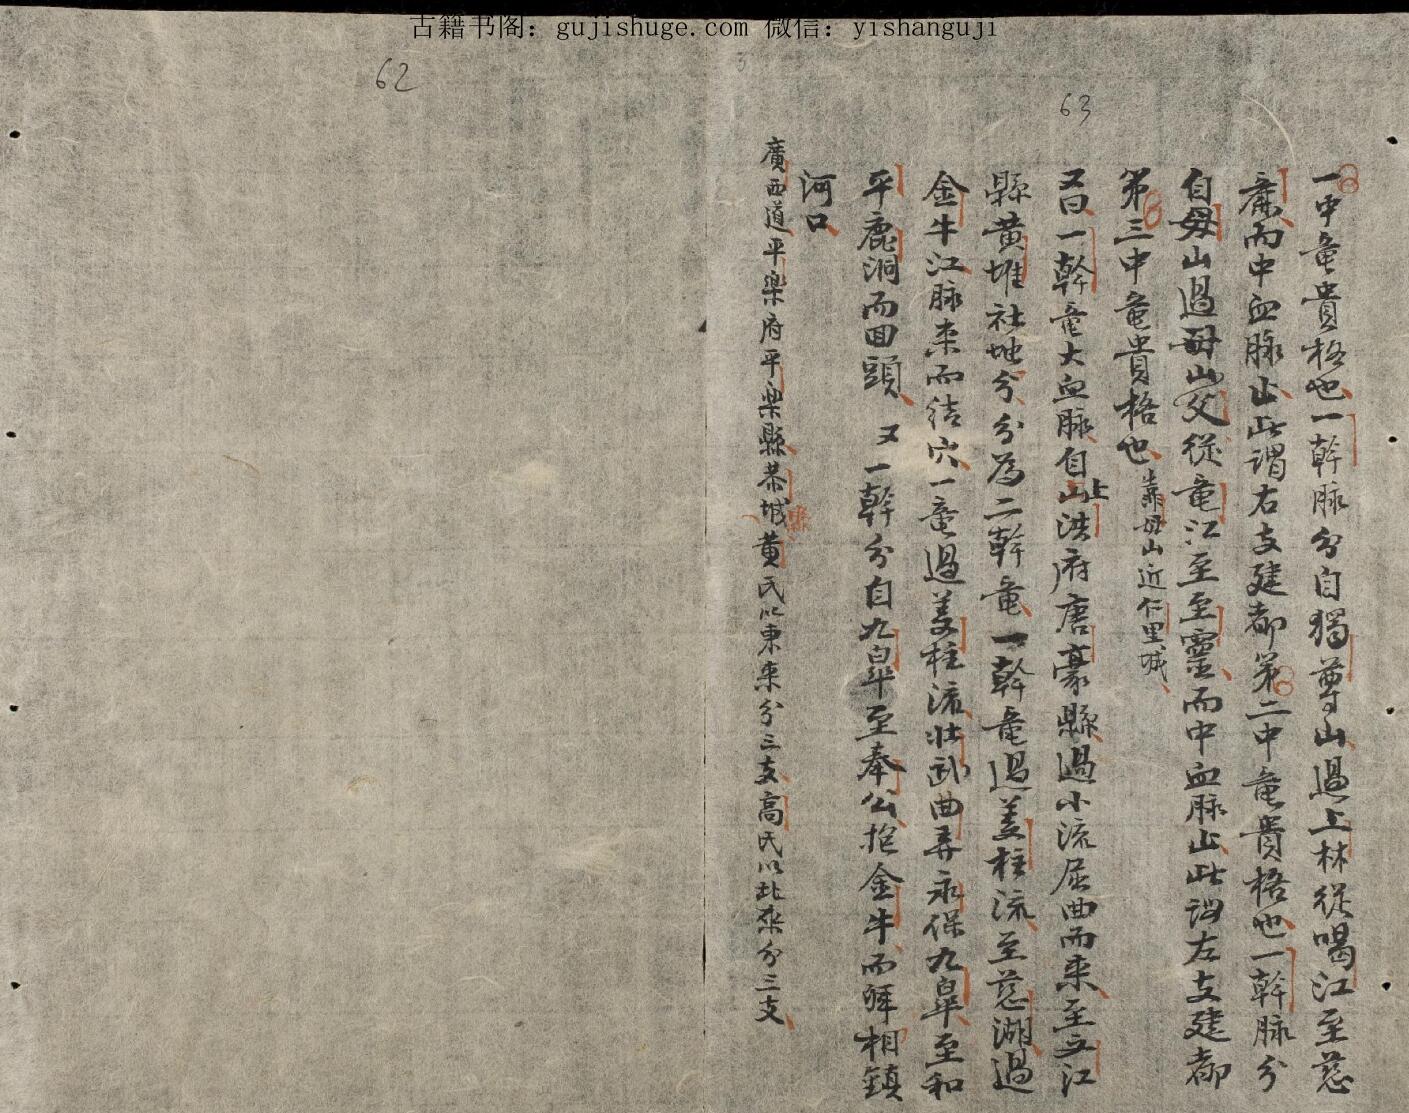 古籍书阁：gujishuge.com 微信：yishanguji
62
63
一中竜貴格也一幹脉分自獨尊山過上林從喝江至慈
廉而中血脉止此謂右支建都第二中竜貴格也一幹脉分
自毋山過毋山父從竜江至至靈而中血脉止此謂左支建都
第三中竜貴格也 靠毋山近仁里城
又曰一幹竜大血脉自山上洪府唐豪縣過小流屈曲而來至文江
縣黄堆社地分分為二幹竜一幹竜過姜柱流至慈湖過
金牛江脉来而结穴一竜過姜柱流壯武曲弄永保九皐至和
平鹿洞而回頭 又一幹分自九皐至奉公抱金牛而 相鎮
河口
廣西道平樂府平樂縣恭城縣黄氏以東来分三支高氏以北来分三支